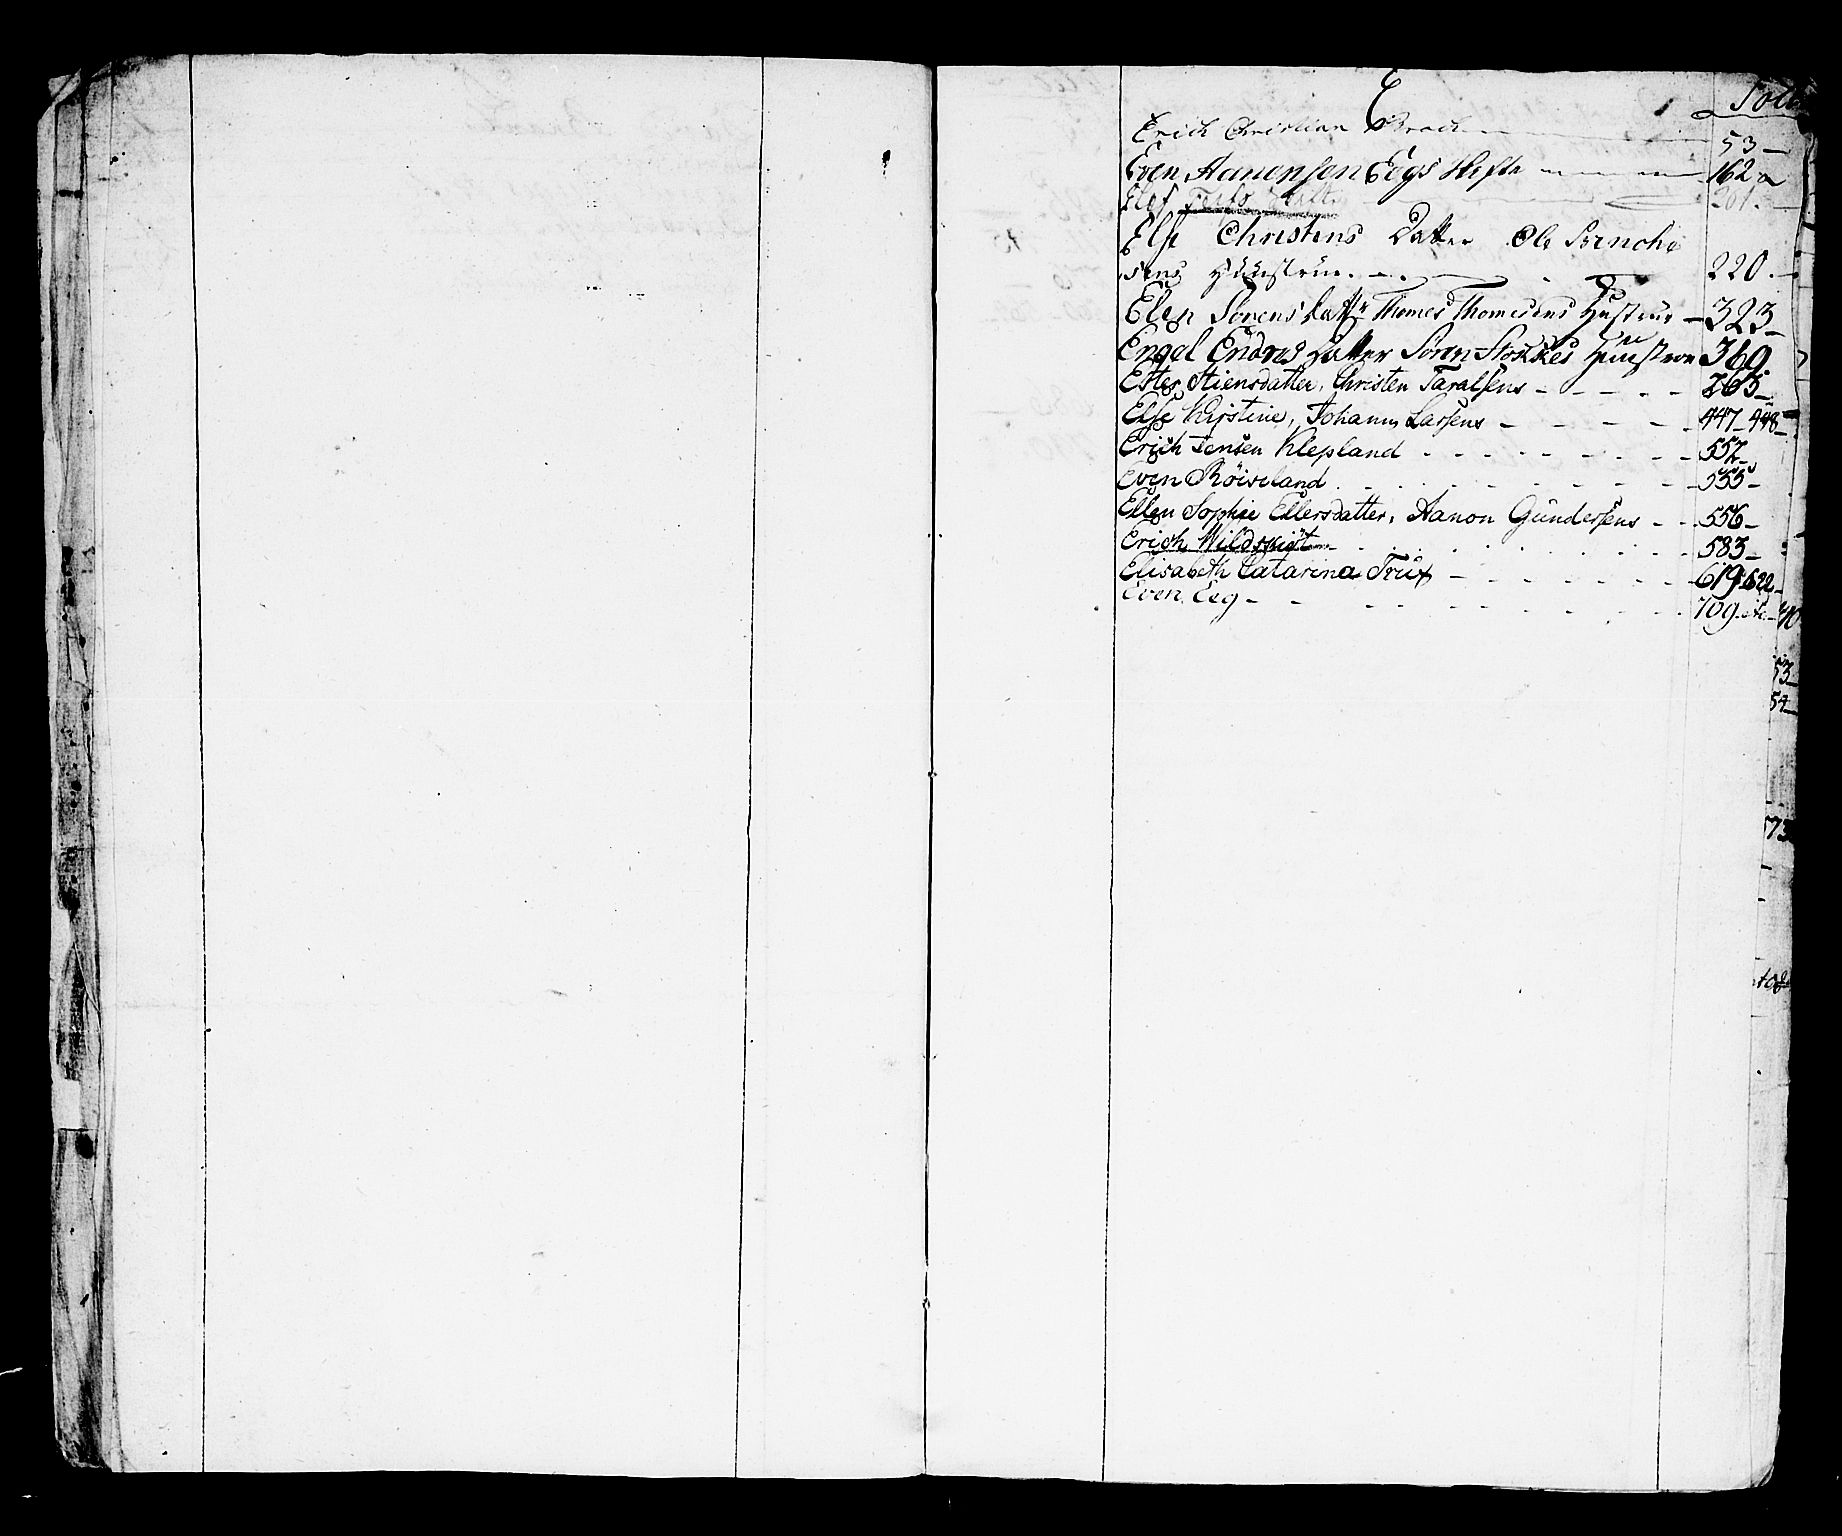 E
Erich Christian 53
Even Aanensen Eegs Hefte 162
Elef 201
Else Christens Datter Ole
sens Hüüstrue. 220.
Elen Sørens Datter Thomes Thomesens Hustrue 323
Engel Endres Datter Søren Stokkes Huustroe 369
Ester Stiensdatter, Christen Taralsens 265
Else Kirstine, Johannes Larsens 447-448
Erich Jensen Klepland 552
Even Röiseland 555
Ellen Sophie Ellersdatter, Aanon Gundersens 556
Erich Wildskiöt 583
Elisabeth Catarina Frux 619 622
Even Eeg 709
53
54
573